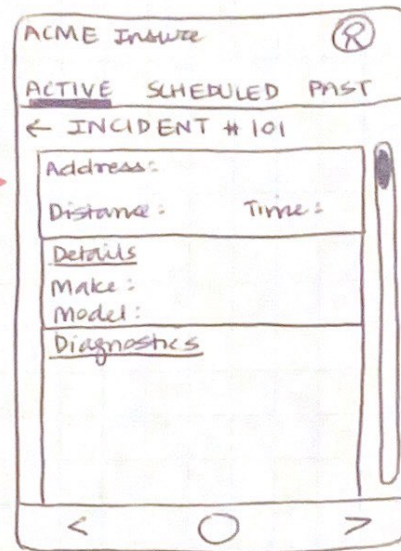 ACME Insure R
ACTIVE SCHEDULED PAST
← INCIDENT # 101
Address:
Distance: Time:
Details
Make:
Model:
Diagnostics
< >